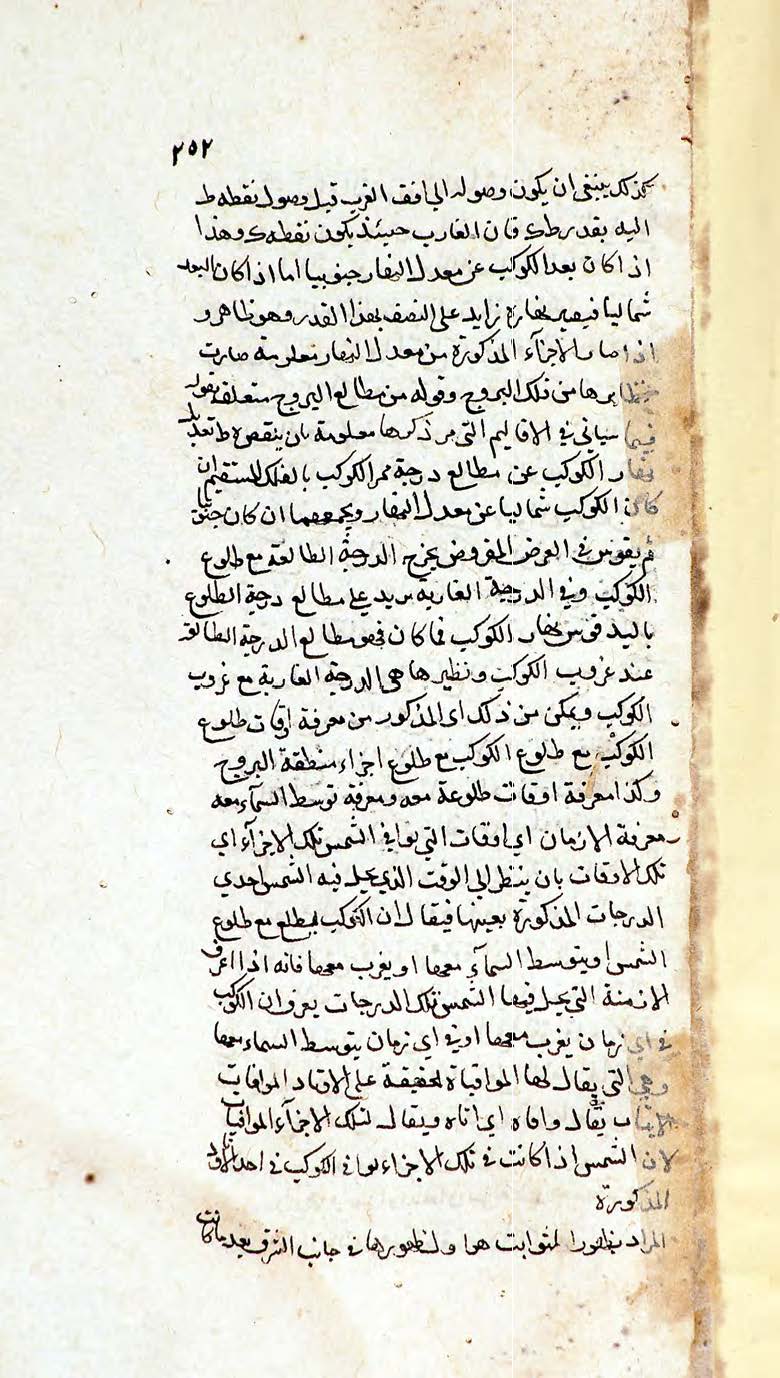 ٢٥٢
كذلك ينبغي ان يكون وصوله الى افق الغرب قبل وصول نقطه ط
اليه بقدر ط ك فان الغارب حينئذ يكون نقطه ك وهذا
اذا كان بعد الكوكب عن معدل النهار جنوبيا اما اذا كان البعد
شماليا فيصير نهاره زايد على النصف بهذا القدر وهو ظاهر و
اذا صار الاجزاء المذكورة من معدل النهار معلومة صارت
نظايرها من فلك البروج وقوله من مطالع البروج متعلق بقوله
فيما سياتي في الاقاليم التي مر ذكرها معلومة بان ينقص تعديل
نهار الكوكب عن مطالع درجة ممر الكوكب بالفلك المستقيم ان
كان الكوكب شماليا عن معدل النهار ويجمعهما ان كان جنوبيا
ثم يقوس في العرض المفروض يخرج الدرجة الطالعة مع طلوع
الكوكب وفي الدرجة الغاربه يزيد على مطالع درجة الطلوع
باليد قوس نهار الكوكب فما كان فهو مطالع الدرجة الطالعة
عند غروب الكوكب ونظيرها هي الدرجة الغاربة مع غروب
الكوكب ويمكن من ذلك اى المذكور من معرفة اوقات طلوع
الكوكب مع طلوع الكوكب مع طلوع اجزاء منطقة البروج
وكذا معرفة اوقات طلوعة معه ومعرفة توسط السماء معه
معرفة الازمان اي اوقات التي يوافي الشمس تلك الاجزاء اي
تلك الاوقات بان ينظر الى الوقت الذي يحل فيه الشمس احدي
الدرجات المذكورة بعينها فيقال ان الكوكب يطلع مع طلوع
الشمس او يتوسط السماء معها او يغرب معها فانه اذا عرف
الازمنة التي يحل فيها الشمس تلك الدرجات يعرف ان الكوكب
في اي زمان يغرب معها او في اي زمان يتوسط السماء معها
وهي التي يقال لها الموافاة لحقيقة على الاوتاد الموافات
الاتيان يقال وافاه اي اتاه ويقال لتلك الاجزاء الموافيات
لان الشمس اذا كانت في تلك الاجزاء يوافي الكوكب في احد الاوتاد
المذكورة
المراد بظهور الثوابت هوا ول ظهورها في جانب الشرق بعد ما كانت